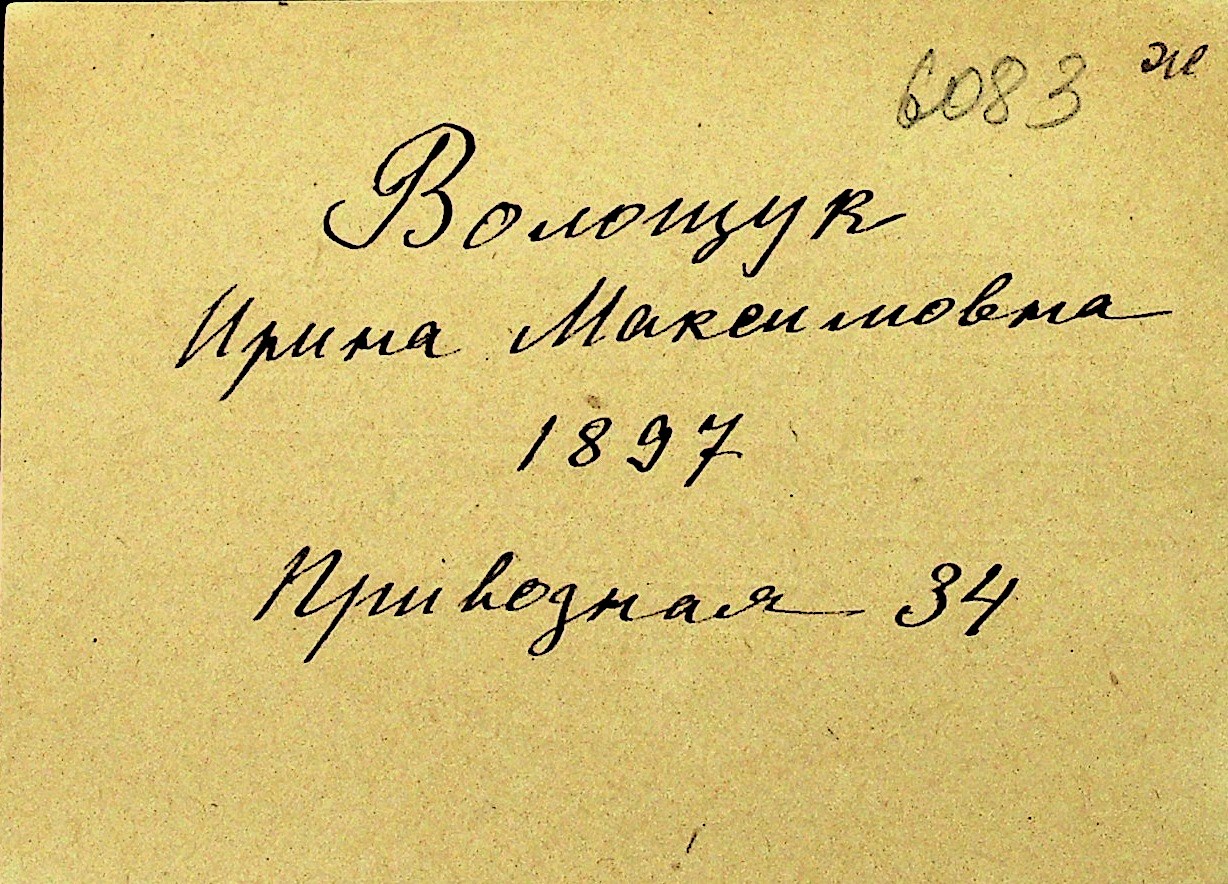 6083 ж
Волощук
Ирина Максимовна
1897
Приводная 34